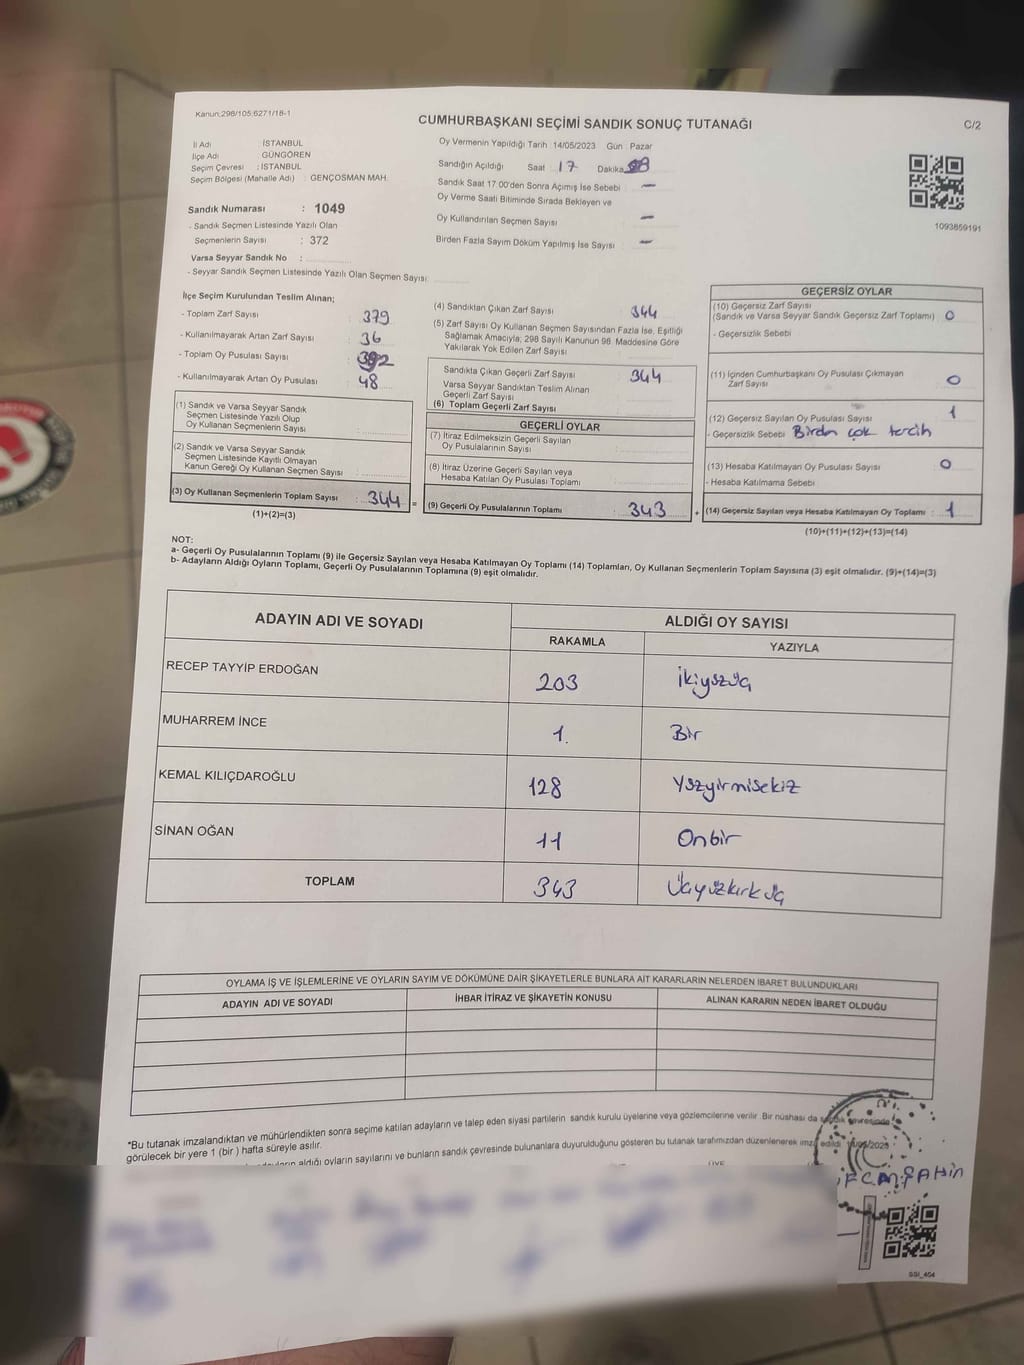 Kanun;298/105;6271/18-1
CUMHURBAŞKANI SEÇİMİ SANDIK SONUÇ TUTANAĞI
C/2
İl Adı : İSTANBUL
İlçe Adı : GÜNGÖREN
Seçim Çevresi : İSTANBUL
Seçim Bölgesi (Mahalle Adı) : GENÇOSMAN MAH.
Sandık Numarası : 1049
- Sandık Seçmen Listesinde Yazılı Olan
Seçmenlerin Sayısı : 372
Varsa Seyyar Sandık No :
- Seyyar Sandık Seçmen Listesinde Yazılı Olan Seçmen Sayısı:
Oy Vermenin Yapıldığı Tarih : 14/05/2023 Gün : Pazar
Sandığın Açıldığı Saat : 17 Dakika
Sandık Saat 17.00'den Sonra Açımış İse Sebebi : —
Oy Verme Saati Bitiminde Sırada Bekleyen ve
Oy Kullandırılan Seçmen Sayısı : —
Birden Fazla Sayım Döküm Yapılmış İse Sayısı : —
1093859191
İlçe Seçim Kurulundan Teslim Alınan;
- Toplam Zarf Sayısı : 379
- Kullanılmayarak Artan Zarf Sayısı : 36
- Toplam Oy Pusulası Sayısı : 392
- Kullanılmayarak Artan Oy Pusulası : 48
(1) Sandık ve Varsa Seyyar Sandık
Seçmen Listesinde Yazılı Olup
Oy Kullanan Seçmenlerin Sayısı :
(2) Sandık ve Varsa Seyyar Sandık
Seçmen Listesinde Kayıtlı Olmayan
Kanun Gereği Oy Kullanan Seçmen Sayısı :
(3) Oy Kullanan Seçmenlerin Toplam Sayısı : 344 =
(1)+(2)=(3)
(4) Sandıktan Çıkan Zarf Sayısı : 344
(5) Zarf Sayısı Oy Kullanan Seçmen Sayısından Fazla İse, Eşitliği
Sağlamak Amacıyla; 298 Sayılı Kanunun 98. Maddesine Göre
Yakılarak Yok Edilen Zarf Sayısı :
Sandıkta Çıkan Geçerli Zarf Sayısı : 344
Varsa Seyyar Sandıktan Teslim Alınan
Geçerli Zarf Sayısı :
(6) Toplam Geçerli Zarf Sayısı :
GEÇERLİ OYLAR
(7) İtiraz Edilmeksizin Geçerli Sayılan
Oy Pusulalarının Sayısı :
(8) İtiraz Üzerine Geçerli Sayılan veya
Hesaba Katılan Oy Pusulası Toplamı :
(9) Geçerli Oy Pusulalarının Toplamı : 343 +
GEÇERSİZ OYLAR
(10) Geçersiz Zarf Sayısı
(Sandık ve Varsa Seyyar Sandık Geçersiz Zarf Toplamı) : 0
- Geçersizlik Sebebi :
(11) İçinden Cumhurbaşkanı Oy Pusulası Çıkmayan
Zarf Sayısı : 0
(12) Geçersiz Sayılan Oy Pusulası Sayısı : 1
- Geçersizlik Sebebi : Birden çok tercih
(13) Hesaba Katılmayan Oy Pusulası Sayısı : 0
- Hesaba Katılmama Sebebi :
(14) Geçersiz Sayılan veya Hesaba Katılmayan Oy Toplamı : 1
(10)+(11)+(12)+(13)=(14)
NOT:
a- Geçerli Oy Pusulalarının Toplamı (9) ile Geçersiz Sayılan veya Hesaba Katılmayan Oy Toplamı (14) Toplamları, Oy Kullanan Seçmenlerin Toplam Sayısına (3) eşit olmalıdır. (9)+(14)=(3)
b- Adayların Aldığı Oyların Toplamı, Geçerli Oy Pusulalarının Toplamına (9) eşit olmalıdır.
ADAYIN ADI VE SOYADI
ALDIĞI OY SAYISI
RAKAMLA
YAZIYLA
RECEP TAYYİP ERDOĞAN 203 İkiyüzüç
MUHARREM İNCE 1. Bir
KEMAL KILIÇDAROĞLU 128 Yüzyirmisekiz
SİNAN OĞAN 11 Onbir
TOPLAM 343 Üçyüzkırküç
OYLAMA İŞ VE İŞLEMLERİNE VE OYLARIN SAYIM VE DÖKÜMÜNE DAİR ŞİKAYETLERLE BUNLARA AİT KARARLARIN NELERDEN İBARET BULUNDUKLARI
ADAYIN ADI VE SOYADI
İHBAR İTİRAZ VE ŞİKAYETİN KONUSU
ALINAN KARARIN NEDEN İBARET OLDUĞU
*Bu tutanak imzalandıktan ve mühürlendikten sonra seçime katılan adayların ve talep eden siyasi partilerin sandık kurulu üyelerine veya gözlemcilerine verilir. Bir nüshası da sandık çevresinde
görülecek bir yere 1 (bir) hafta süreyle asılır.
aldığı oyların sayılarını ve bunların sandık çevresinde bulunanlara duyurulduğunu gösteren bu tutanak tarafımızdan düzenlenerek imza edildi.
ÜYE
ŞAHİN
SSI_404